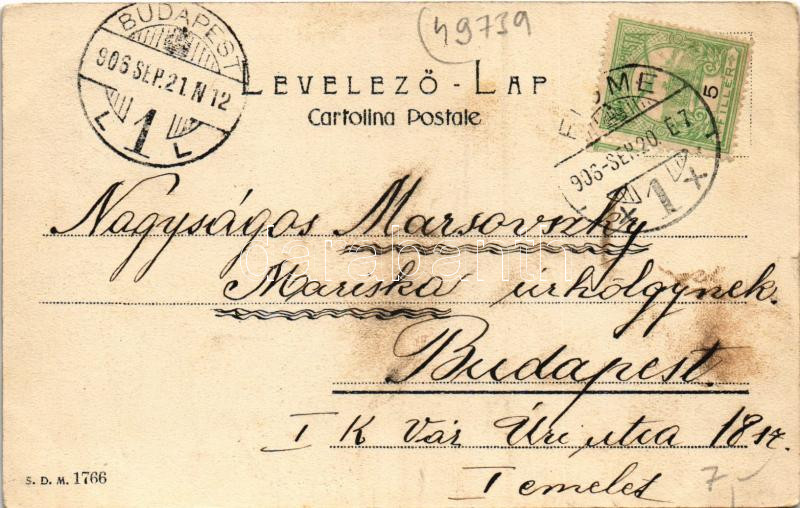 49739
BUDAPEST
906 SEP. 21. N 12
1
L L
LEVELEZŐ - LAP
Cartolina Postale
5
FILLER
FIUME
906-SEP. 20. E 7
1
Nagyságos Marsovszky
Mariska úrhölgynek.
Budapest.
I K Vár Úri utca 18 sz.
I emelet
S. D. M. 1766
7,-
darabanth